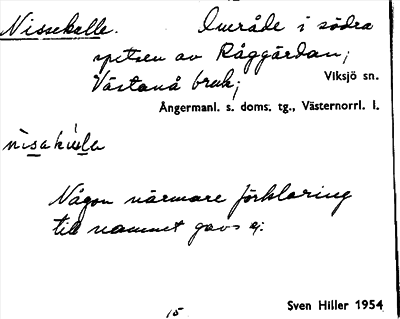 Nissekulle. Område i södra
spitsen av Råggärdan;
Västanå bruk; Viksjö sn.
Ångermanl. s. doms. tg., Västernorrl. l.
Någon närmare förklaring
till namnet gavs ej.
15
Sven Hiller 1954